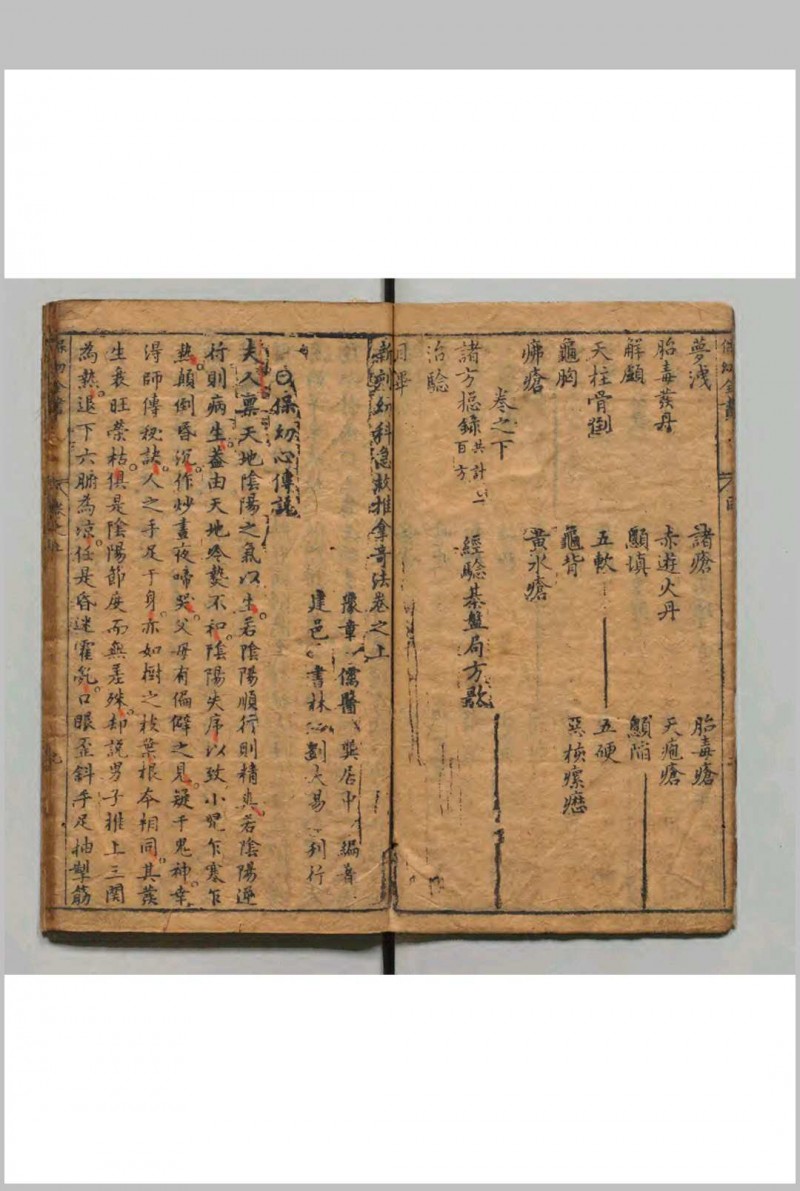 夢洩 諸瘡 胎毒瘡
胎毒發丹 赤遊火丹 天疱瘡
解顱 顖填 顖陷
天柱骨倒 五軟 五硬
龜胸 龜背 惡核瘰癧
疿瘡 黃水瘡
卷之下
諸方揔錄共計一百方 經騐棊盤局方歌
治騐
目畢
新刻幼科急救推拿竒法卷之上
豫章 儒醫 龔居中 編著
建邑 書林 劉大易 刊行
保幼心傳訣
夫人禀天地陰陽之氣以生若陰陽順行則精爽若陰陽逆
行則病生蓋由天地冷熱不和陰陽失序以致小兒乍寒乍
熱顛倒昏沉作炒晝夜啼哭父母有偏僻之見疑于鬼神幸
淂師傳秘訣人之手足于身亦如樹之枝葉根本相同其發
生衰旺榮枯俱是陰陽節度而無差殊却説男子推上三関
為熱退下六腑為凉任是昏迷霍亂口眼歪斜手足抽掣筋